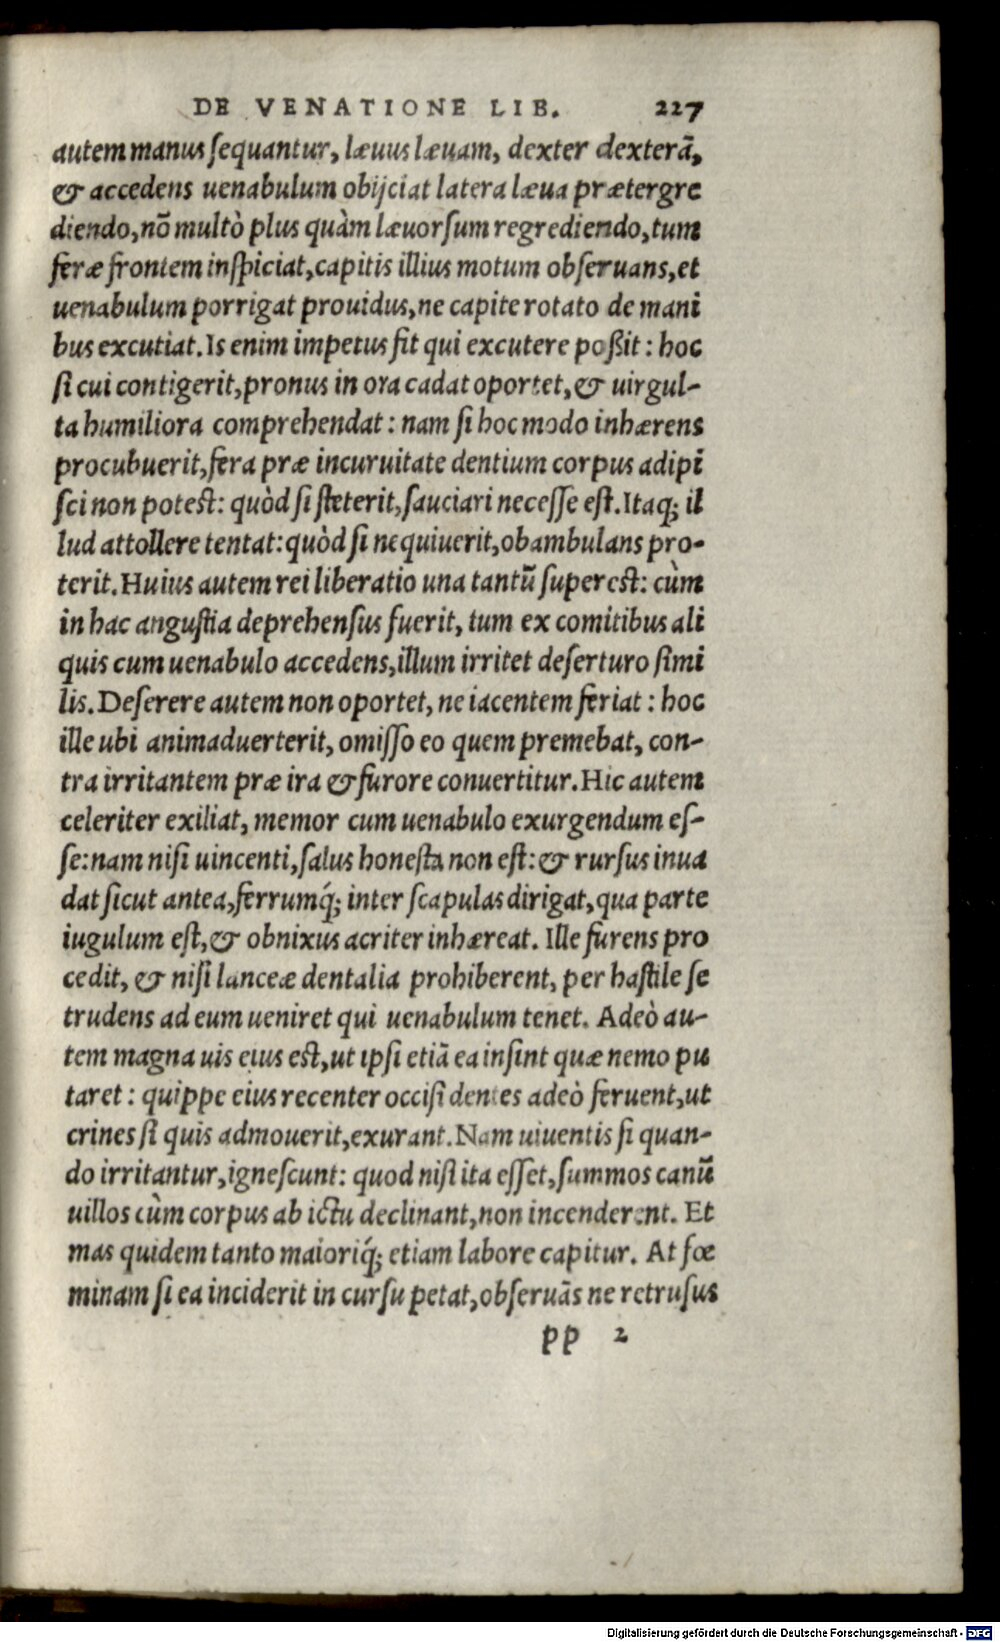 DE VENATIONE LIB. 227
autem manus sequantur, læuus læuam, dexter dexterã,
& accedens uenabulum obijciat latera læua prætergre
diendo, nõ multò plus quàm læuorsum regrediendo, tum
feræ frontem inspiciat, capitis illius motum obseruans, et
uenabulum porrigat prouidus, ne capite rotato de mani
bus excutiat. Is enim impetus fit qui excutere poßit : hoc
si cui contigerit, pronus in ora cadat oportet, & uirgul-
ta humiliora comprehendat : nam si hoc modo inhærens
procubuerit, fera præ incuruitate dentium corpus adipi
sci non potest: quòd si steterit, sauciari necesse est. Itaq; il
lud attollere tentat: quòd si nequiuerit, obambulans pro-
terit. Huius autem rei liberatio una tantũ superest: cùm
in hac angustia deprehensus fuerit, tum ex comitibus ali
quis cum uenabulo accedens, illum irritet deserturo simi
lis. Deserere autem non oportet, ne iacentem feriat : hoc
ille ubi animaduerterit, omisso eo quem premebat, con-
tra irritantem præ ira & furore conuertitur. Hic autem
celeriter exiliat, memor cum uenabulo exurgendum es-
se: nam nisi uincenti, salus honesta non est: & rursus inua
dat sicut antea, ferrumq́; inter scapulas dirigat, qua parte
iugulum est, & obnixus acriter inhæreat. Ille furens pro
cedit, & nisi lanceæ dentalia prohiberent, per hastile se
trudens ad eum ueniret qui uenabulum tenet. Adeò au-
tem magna uis eius est, ut ipsi etiã ea insint quæ nemo pu
taret : quippe eius recenter occisi dentes adeò feruent, ut
crines si quis admouerit, exurant. Nam uiuentis si quan-
do irritantur, ignescunt: quod nisi ita esset, summos canũ
uillos cùm corpus ab ictu declinant, non incenderent. Et
mas quidem tanto maioriq́; etiam labore capitur. At fœ
minam si ea inciderit in cursu petat, obseruãs ne retrusus
pp 2
Digitalisierung gefördert durch die Deutsche Forschungsgemeinschaft - DFG